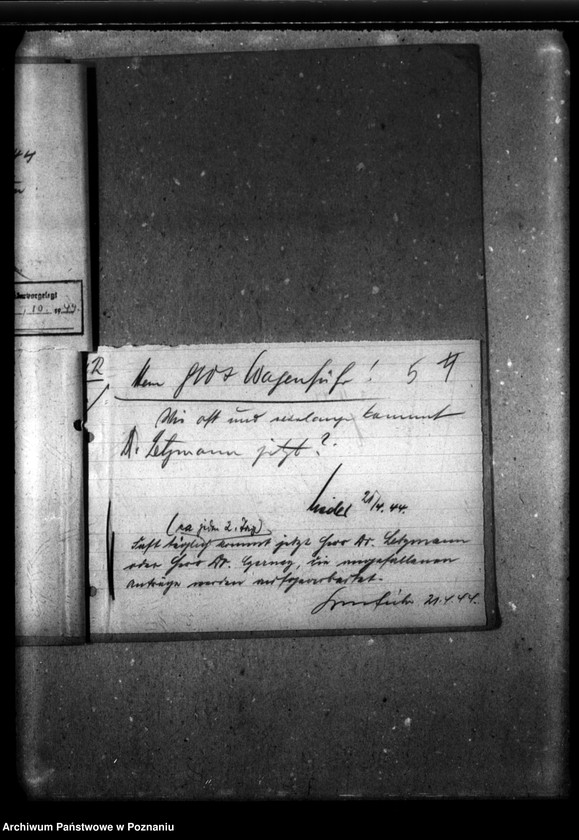 44
vorgelegt
10. 1944.
R
Herrn Wagenführ! 5
Wie oft und wielange kommt
Dr. Letzmann jetzt?
21/4. 44.
(ca jeden 2. Tag)
Fast täglich kommt jetzt Herr Dr. Letzmann
oder Herr Dr. Die angefallenen
Anträge werden aufgearbeitet.
21.4.44.
Archiwum Państwowe w Poznaniu